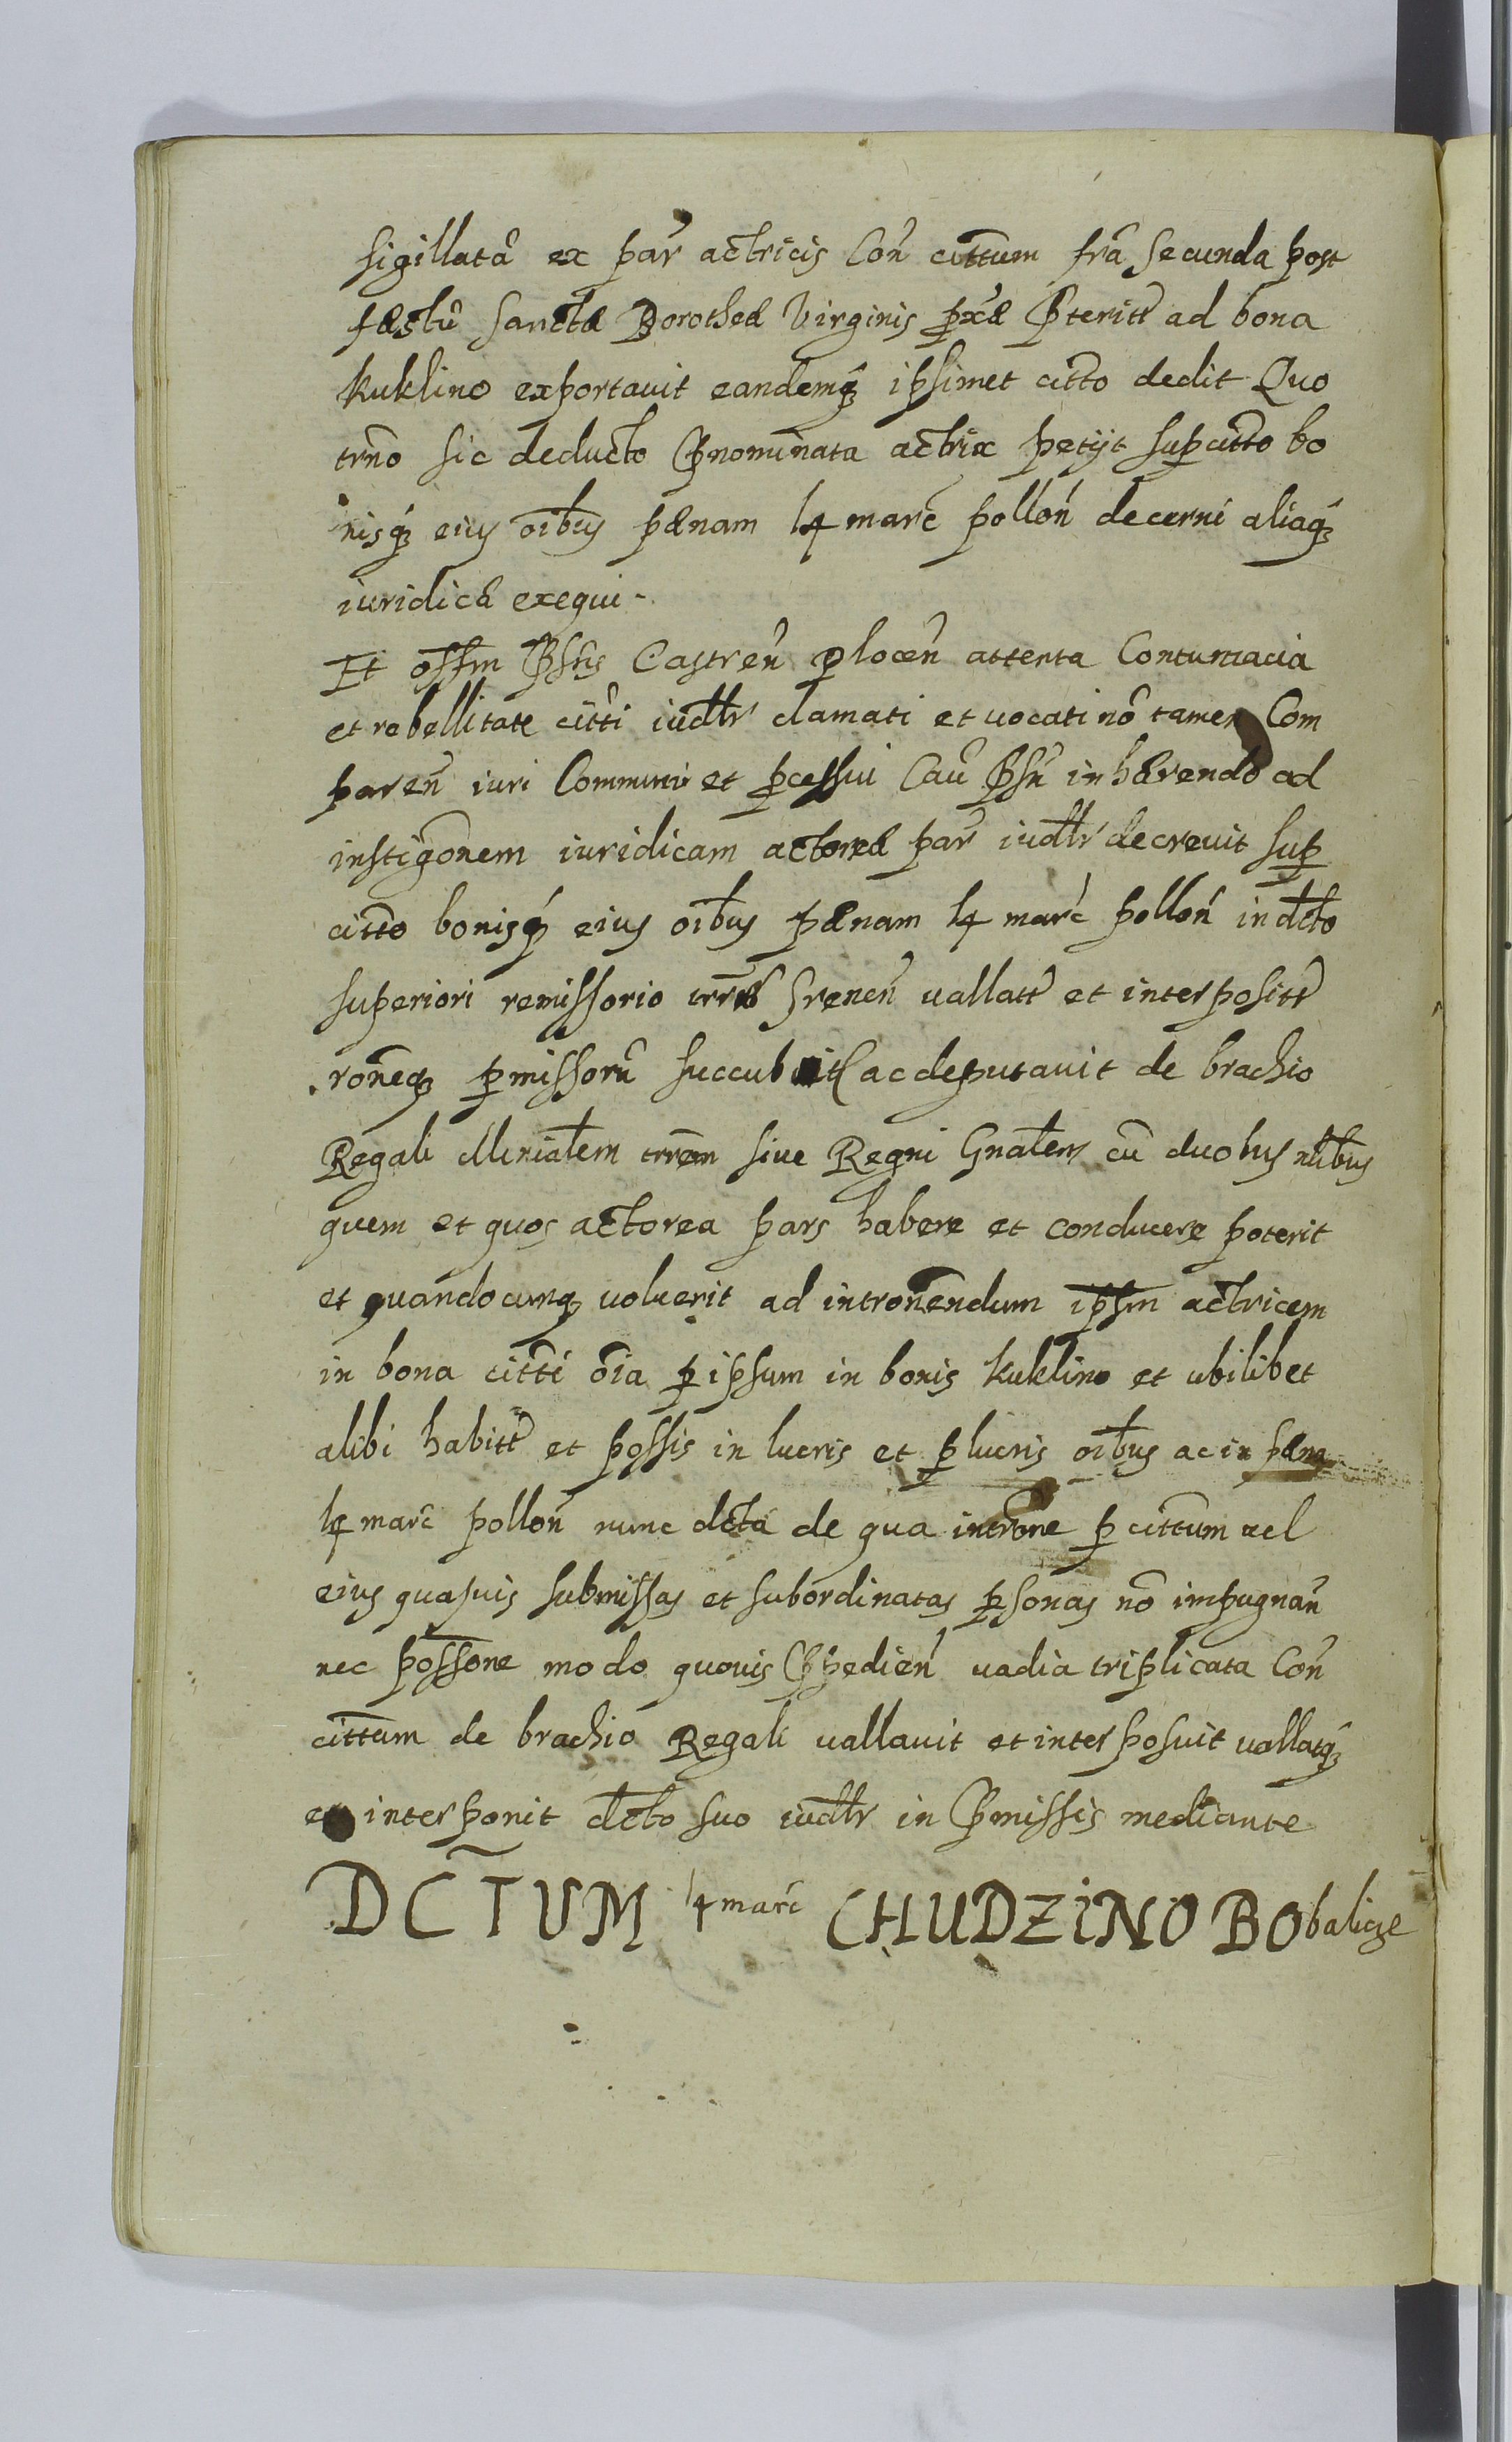 sigillatā ex par̄ actricis Con̄ cittum fr̄a Secunda post
fæstū Sanctæ Dorotheæ Virginis p̄xæ P̄teritt̄ ad bona
Kuklino exportauit eandemq́ȝ ipsimet citt̄o dedit Quo
trn̄o sic deducto P̄nominata actrix petijt sup citt̄o bo
nisq́ȝ eius oībus pænam 14 marc̄ pollon̄ decerni aliaq́ȝ
iuridicā exequi -
Et offm̄ P̄sn̄s Castren̄ plocen̄ attenta Contumacia
et rebellitate citt̄i iudtr̄ clamati et uocati nō tamen Com
paren̄ iuri Communi et pcessui Cau̅ P̄sn̄ inhærendo ad
instigōnem iuridicam actoreæ par̄ iudtr̄ decreuit sup
citto bonisq́ȝ eius oībus pænam 14 marc̄ pollon̄ in dcto
superiori remissorio trr̄is Srenen̄ uallatt̄ et interpositt̄
rōneq́ȝ p̄missorū succubuit ac deputauit de brachio
Regali Minialem trrēm siue Regni Gn̄alem cū duobus nlibus
quem et quos actorea pars habere et conducere poterit
et quandocunq́ȝ uoluerit ad introm̄endum ipsm̄ actricem
in bona citt̄i ōia p ipsum in bonis Kuklino et ubilibet
alibi habitt̄ et possis in lucris et p lucris oībus ac in pæna
14 marc̄ pollon̄ nunc dcta de qua intrōne p cittum uel
eius quasuis submissas et subordinatas psonas nō impugnan̄
nec possōne modo quouis P̄pedien̄ uadia triplicata Con̄
cittum de brachio Regali uallauit et interposuit uallatq́ȝ
et interponit dcto suo iudtr̄ in P̄missis mediante
DCT̃UM 14 marc̄ CHUDZINO BObalicze